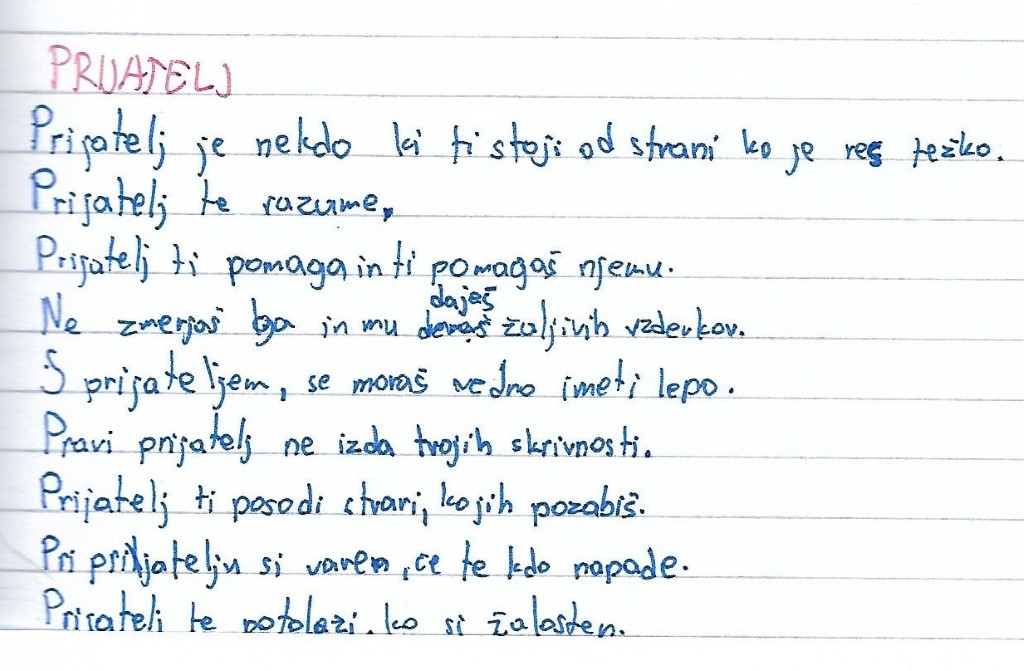 PRIJATELJ
Prijatelj je nekdo ki ti stoji od strani ko je res težko.
Prijatelj te razume,
Prijatelj ti pomaga in ti pomagaš njemu.
daješ
Ne zmerjaš ga in mu devaš žaljivih vzdevkov.
S prijateljem, se moraš vedno imeti lepo.
Pravi prijatelj ne izda tvojih skrivnosti.
Prijatelj ti posodi stvari, ko jih pozabiš.
Pri prijatelju si varen, če te kdo napade.
Prijatelj te potolaži, ko si žalosten.